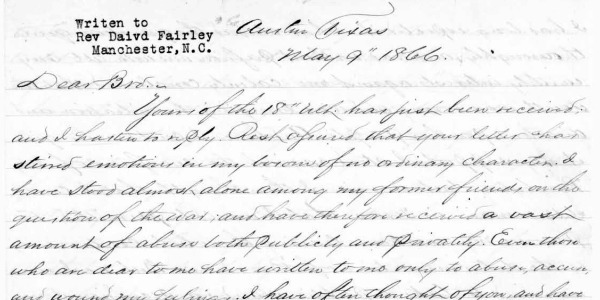 Writen to
Rev Daivd Fairley
Manchester, N.C.
Austin Texas
May 9" 1866.
Dear Bro.
Yours of the 18" Ult. has just been received.
and I hasten to reply. Rest assured that your letter has
stirred emotions in my bosom of no ordinary character. I
have stood almost alone among my former friends on the
question of the war, and have therefore received a vast
amount of abuse both Publicly and Privately. Even those
who are dear to me have written to me only to abuse, accuse,
and wound my feelings. I have often thought of you, and have